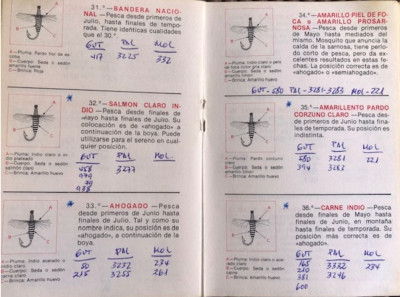 31.°— BANDERA NACIO-
NAL —Pesca desde primeros de
Julio, hasta finales de tempo-
rada. Tiene identicas cualidades
que el 30.°
GUT PAL MOL
417 3225 352
A.—Pluma:
B.—Cuerpo: Seda o sedón
amarillo huevo
C.—Brinca: Rosa
32.°— SALMON CLARO IN-
DIO —Pesca desde finales de
Mayo hasta finales de Julio. Su
colocación es de «ahogado» a
continuación de la boya. Puede
utilizarse para el sereno en cual-
quier posición.
GUT PAL MOL
3277
A.—Pluma: Indio claro
B.—Cuerpo: Seda o sedón
salmón claro
C.—Brinca: Amarillo huevo
33.°— AHOGADO —Pesca
desde primeros de Junio hasta
finales de Julio. Tal y como su
nombre indica, su posición es de
«ahogado», a continuación de la
boya.
GUT PAL MOL
50 3232 234
3255 261
A.—Pluma: Indio acerado
B.—Cuerpo: Seda o sedón
C.—Brinca: Amarillo huevo
34.°— AMARILLO PIEL DE FO-
CA o AMARILLO PROSAR-
NOSA —Pesca de primeros
de Mayo hasta mediados del
mismo. Mosquito que anuncia la
caída de la sarnosa, tiene perio-
do corto de pesca, pero da ex-
celentes resultados en estas fe-
chas. La posición correcta es de
«ahogado» o «semiahogado».
GUT-580 PAL-3281-3283 MOL-221
A.—Pluma: Indio claro
35.°— AMARILLENTO PARDO
CORZUNO CLARO —Pesca
desde primeros de Junio hasta fina-
les de temporada. Su posición es
indistinta.
GUT PAL MOL
580 3281 221
394 3283
A.—Pluma: Pardo, corzuno
claro
B.—Cuerpo: Seda o sedón
amarillo claro
C.—Brinca: Amarillo huevo
36.°— CARNE INDIO —Pesca
desde finales de Mayo hasta
finales de Junio, en montaña
hasta finales de temporada. Su
posición más correcta es de
«ahogado».
GUT PAL MOL
3322 234
381 3246
600
A.—Pluma: Indio acerado
B.—Cuerpo: Seda o sedón
C.—Brinca: Amarillo huevo